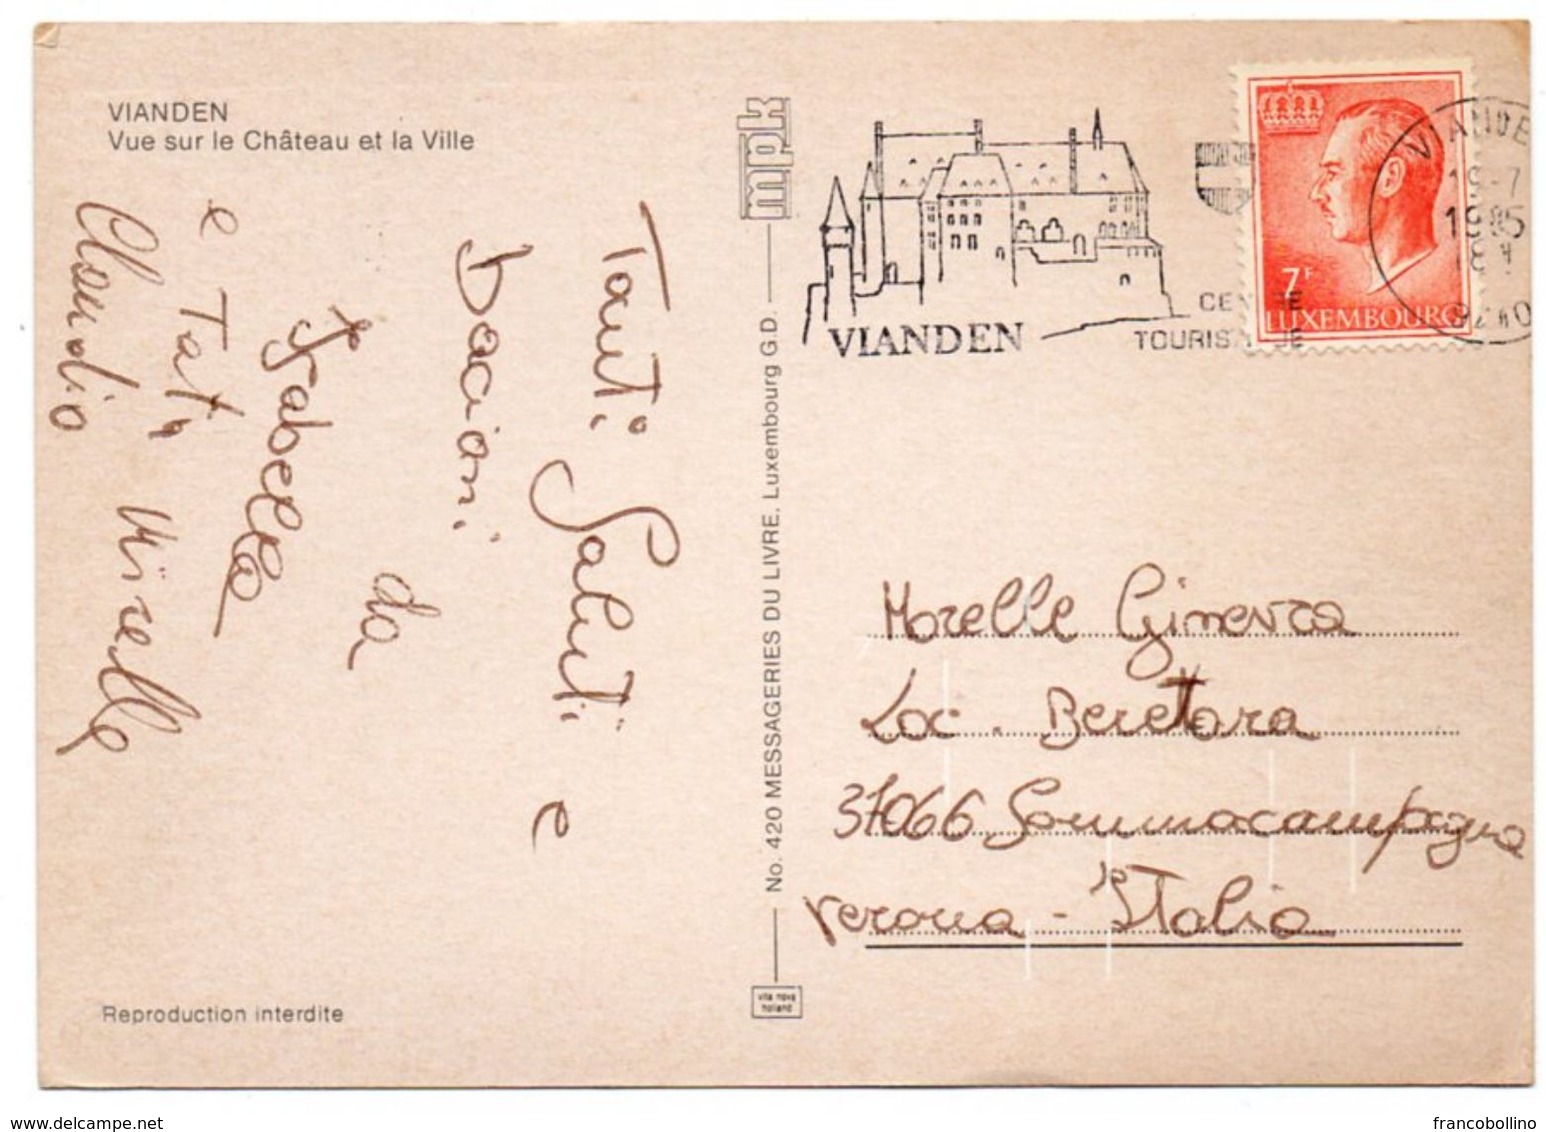 VIANDEN
Vue sur le Château et la Ville
Tanti Saluti e
Bacioni
da
Isabella
e Tati Mirella
Claudio
Reproduction interdite
mpk
No. 420 MESSAGERIES DU LIVRE, Luxembourg G.D.
vita nova
holland
VIANDEN
CENTRE
TOURISTIQUE
7F
LUXEMBOURG
VIANDE
19-7
1985
9240
Morelle Ginevra
Loc. Berettara
37066 Sommacampagna
Verona - Italia
www.delcampe.net
francobollino